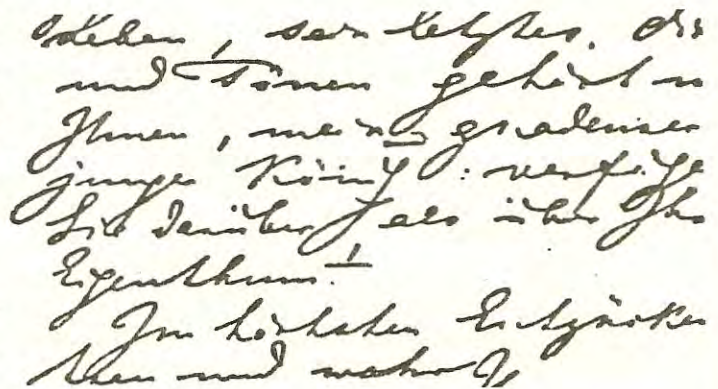 Leben, sein letztes
und Tönen gehört
Ihnen, mein
junger König: verfüge
Sie darüber als über Ihr
Eigenthum!
Im höchsten Entzücken
treu und wahr